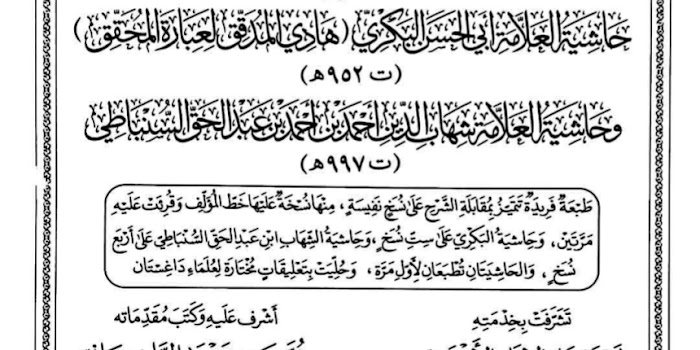 حَاشِيَةُ العَلَّامَةِ أَبِي الحَسَنِ البَكْرِيِّ (هَادِي المُدَقِّقِ لِعِبَارَةِ المُحَقِّقِ)
(ت ٩٥٢ هـ)
وَحَاشِيَةُ العَلَّامَةِ شِهَابِ الدِّينِ أَحْمَدَ بْنِ أَحْمَدَ بْنِ عَبْدِ الحَقِّ السُّنْبَاطِيِّ
(ت ٩٩٧ هـ)
طَبْعَةٌ فَرِيدَةٌ تَتَمَيَّزُ بِمُقَابَلَةِ الشَّرْحِ عَلَى نُسَخٍ نَفِيسَةٍ، مِنْهَا نُسْخَةٌ عَلَيْهَا خَطُّ المُؤَلِّفِ وَقُرِئَتْ عَلَيْهِ
مَرَّتَيْنِ، وَحَاشِيَةُ البَكْرِيِّ عَلَى سِتِّ نُسَخٍ، وَحَاشِيَةُ الشِّهَابِ ابْنِ عَبْدِ الحَقِّ السُّنْبَاطِيِّ عَلَى أَرْبَعِ
نُسَخٍ، وَالحَاشِيَتَانِ تُطْبَعَانِ لِأَوَّلِ مَرَّةٍ، وَحُلِّيَتْ بِتَعْلِيقَاتٍ مُخْتَارَةٍ لِعُلَمَاءِ دَاغِسْتَان
تَشَرَّفَتْ بِخِدْمَتِهِ
أَشْرَفَ عَلَيْهِ وَكَتَبَ مُقَدِّمَاتِهِ